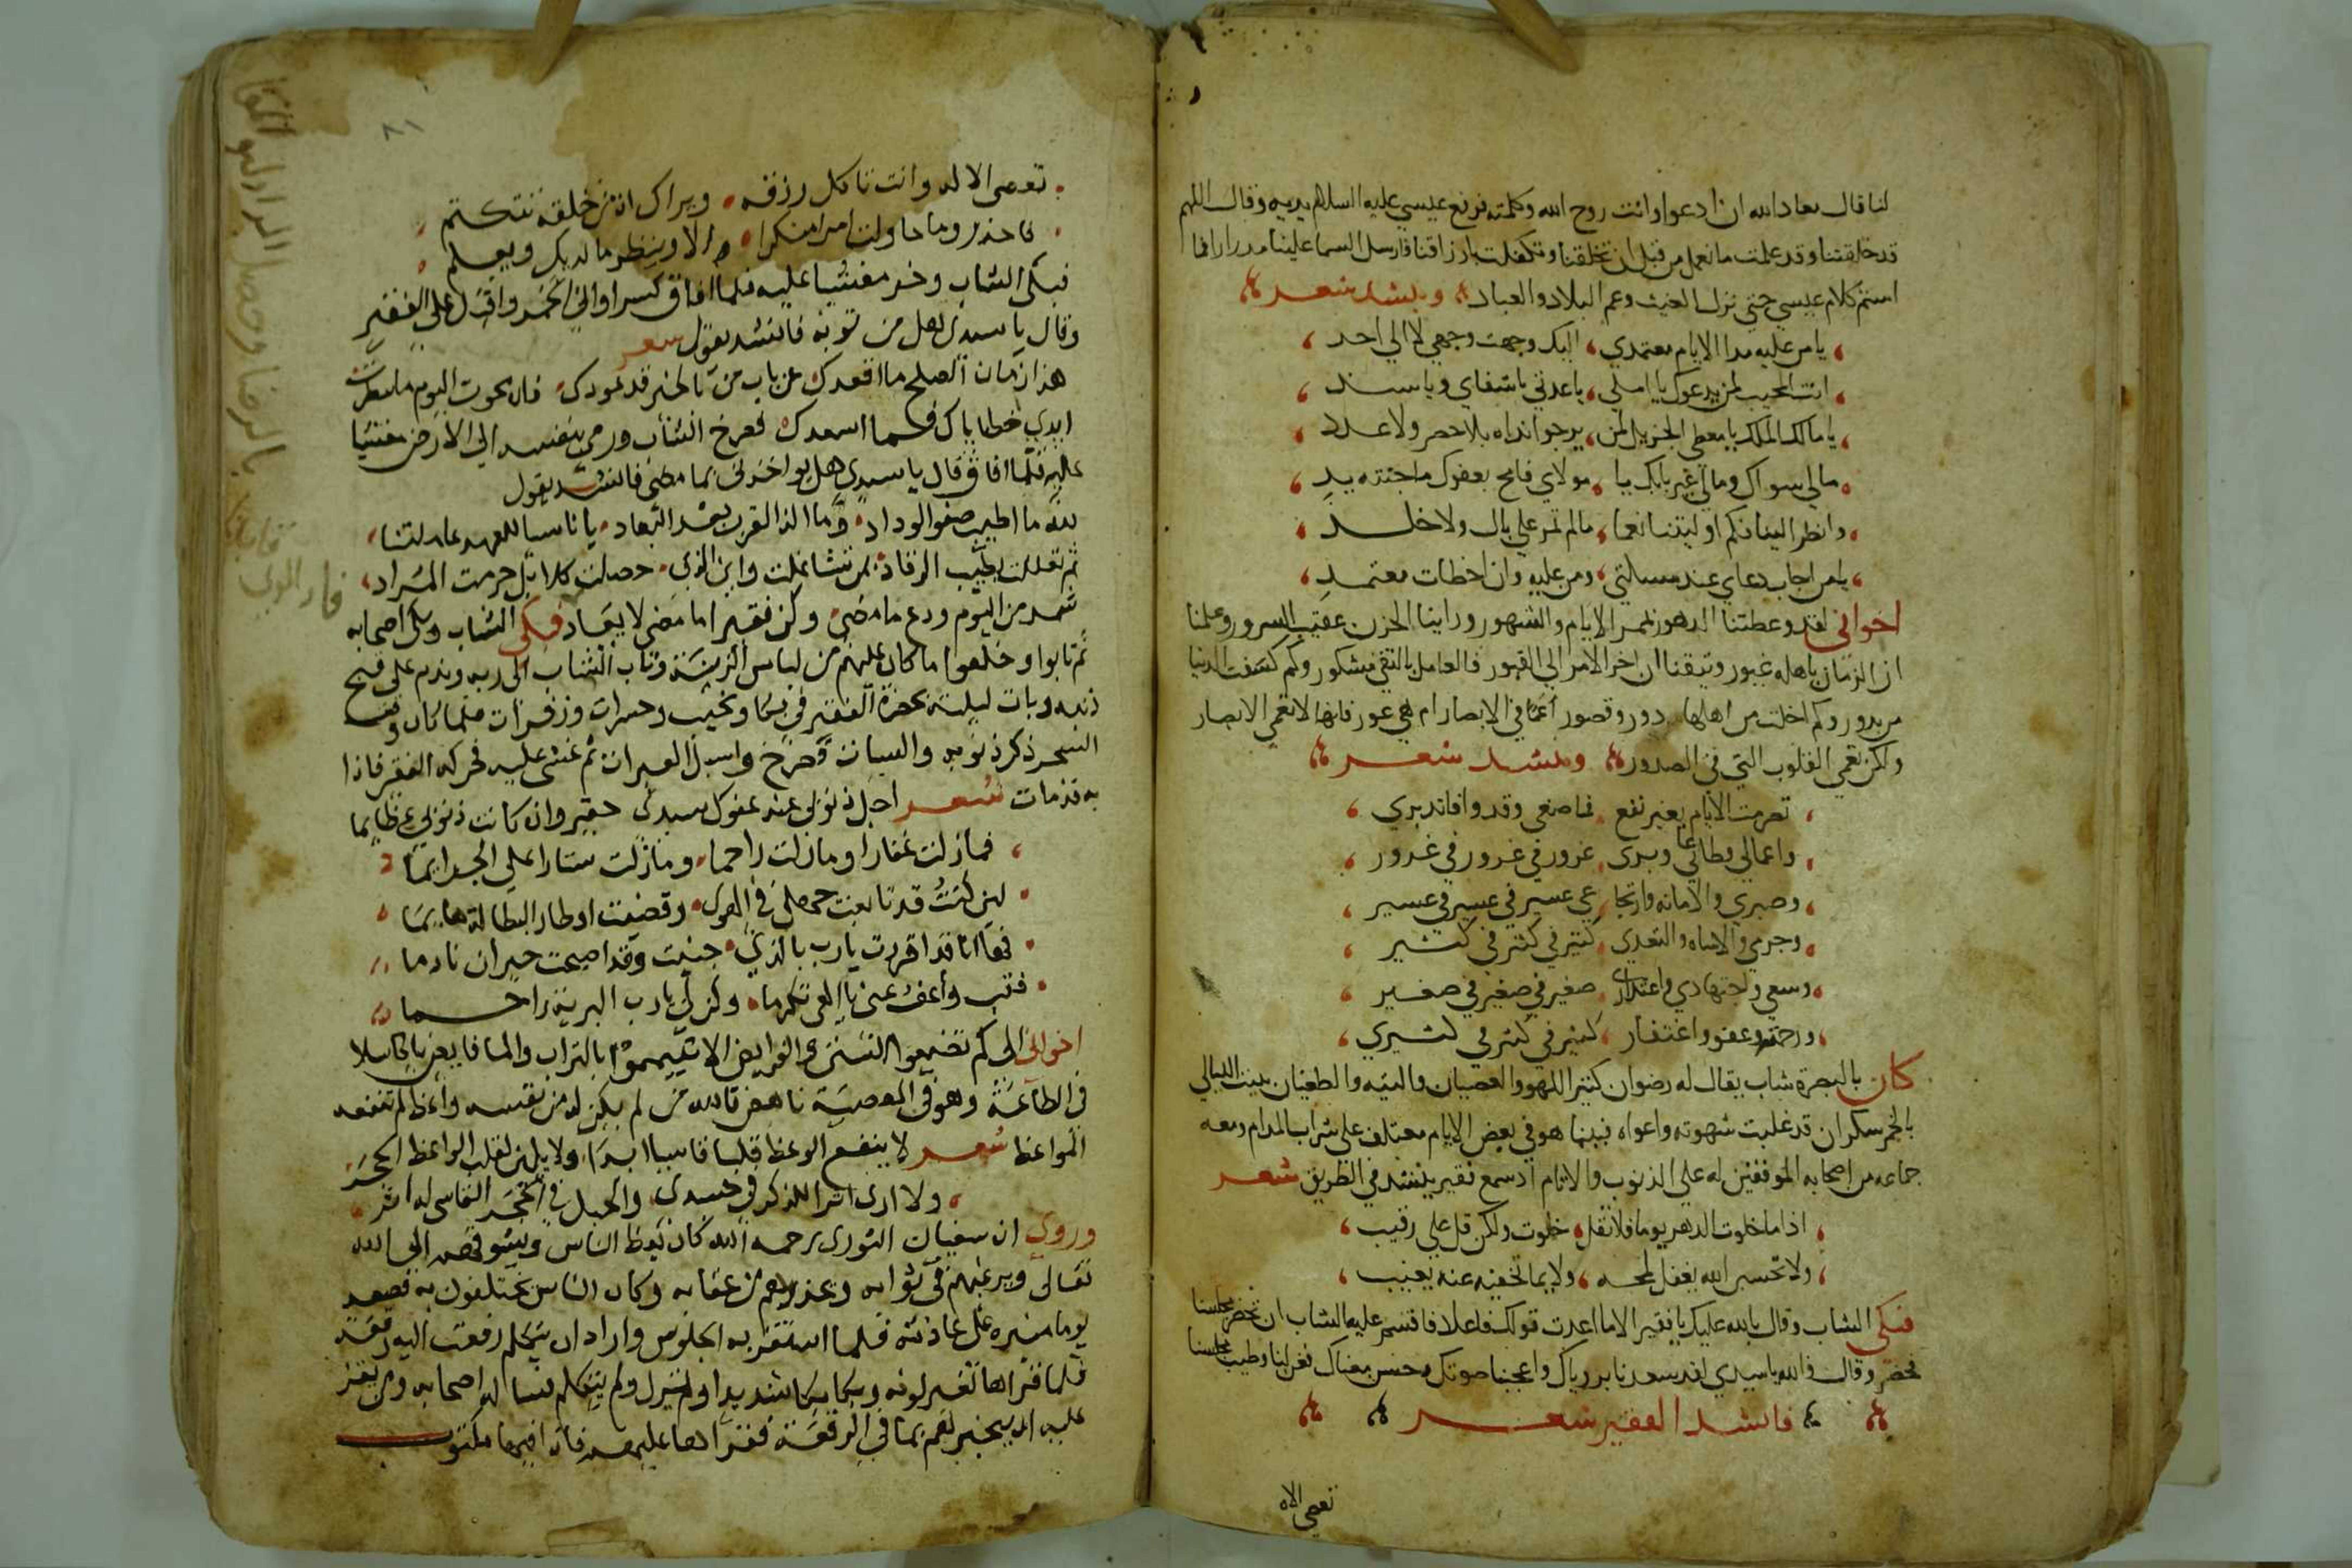 لنا قال معاد الله ان ادعوا وانت روح الله وكلمته فرفع عيسي عليه السلام يديه وقال اللهم
قد خلقتنا وقد علمت ما نعمل من قبل ان تخلقنا وتكفلت بارزاقنا فارسل السما علينا مدرارا فما
استتم كلام عيسي حتي نزل الغيث وعم البلاد والعباد وينشد شعر
يا من عليه مدا الايام معتمدي اليك وجهت وجهي لا الي احد
انت المجيب لمن يدعوك يا املي يا عدتي يا شفاي ويا سند
يا مالك الملك يا معطي الجزيل لمن يرجوا نداه بلا حصر ولا عدد
مالي سواك ومالي غير بابك يا مولاي فامح بعفوك ما جنته يد
وانظر الينا فكم اوليتنا نعما مالم تمر علي بال ولا خلد
يا من اجاب دعاي عند مسالتي ومن عليه وان اخطات معتمد
اخواني لقد وعظتنا الدهور بممر الايام والشهور وراينا الحزن عقيب السرور وعلمنا
ان الزمان باهله غيور وتيقنا ان اخر الامر الي القبور فالعامل بالتقي مشكور وكم كسفت الدنيا
من بدور وكم اخلت من اهلها دور وقصور اعما في الابصار ام هي عور فانها لا تعمي الابصار
ولكن تعمي القلوب التي في الصدور وينشد شعر
تصرمت الايام بغير نفع فما صنعي وقد وافا نديري
واعمالي وطاعاتي وبري غرور في غرور في غرور
وصبري والامانه وارتجاعي عسير في عسير في عسير
وجرمي والاساه والتعدي كثير في كثير في كثير
وسعي واجتهادي واعتذاري صغير في صغير في صغير
ورحمته وعفو واغتفار كثير في كثير في كثيري
كان بالبصرة شاب يقال له رضوان كثير اللهو والعصيان والتيه والطغيان يبيت الليالي
بالخمر سكران قد غلبت شهوته واغواه فبينما هو في بعض الايام معتكف علي شراب المدام ومعه
جماعه من اصحابه الموفقين له علي الذنوب والاثام اذ سمع فقير ينشد في الطريق شعر
اذا ما خلوت الدهر يوما فلا تقل خلوت ولكن قل علي رقيب
ولا تحسبن الله يغفل لمحه ولا بما تخفيه عنه يغيب
فبكي الشاب وقال بالله عليك يا فقير الا ما اعدت قولك فاعاد فاقسم عليه الشاب ان تحضر مجلسنا
فحضر وقال والله يا سيدي لقد سعدنا برؤياك واعجبنا صوتك وحسن معناك فغن لنا وطيب مجلسنا
فانشد الفقير شعر
تعصي الاه
٨١
تعصي الاله وانت تاكل رزقه ويراك ان من خلقه تتكتم
فاحذر وما حاولت امرا منكرا الا وينظر ما لديك ويعلم
فبكي الشاب وخر مغشيا عليه فلما افاق كسر اواني الخمر واقبل علي الفقير
وقال يا سيدي هل من توبة فانشد يقول شعر
هذا زمان الصلح ما اقعدك عن باب من بالخير قد عودك فان محوت اليوم ما سطرت
ايدي خطاياك فما اسعدك فصرخ الشاب ورمي بنفسه الي الارض مغشيا
عليه فلما افاق قال يا سيدي هل يواخذني بما مضي فانشد يقول
لله ما اطيب صفو الوداد وما الذ القرب بعد البعاد يا ناسيا للعهد عاهدتنا
ثم تعللت بطيب الرقاد بمن تشاغلت واين الذي حصلت كلا بل حرمت المراد
من اليوم ودع ما مضي وكن فقيرا ما مضي لا يعاد فبكي الشاب وبكي اصحابه
ثم تابوا وخلعوا ما كان عليهم من لباس الزينة وتاب الشاب الي ربه وندم علي قبح
ذنبه وبات ليلته بحضرة الفقير في بكا ونحيب وحسرات وزفرات فلما كان وقت
السحر ذكر ذنوبه والسيات وصرخ واسبل العبرات ثم غشي عليه فحركه الفقير فاذا
به قد مات شعر اجل ذنوبي عند عفوك سيدي حقير وان كانت ذنوبي عظايما
فما زلت غفارا وما زلت راحما وما زلت ستارا علي الجرايما
لين كنت قد تابعت جهلي في الهوي وقضيت اوطار البطالة هايما
فها انا قد اقررت يا رب بالذي جنيت وقد اصبحت حيران نادما
فتب واعف عني يا الهي تكرما وكن لي يا رب البرية راحما
اخواني الي كم تضيعوا السنن والفرايض الا تيمموا بالتراب والما فايض يا كاسلا
في الطاعة وهو في المعصية ناهض تالله من لم يكن له من نفسه واعظ لم تنفعه
المواعظ شعر لا ينفع الوعظ قلبا قاسيا ابدا ولا يلين لقلب الواعظ الحجر
ولا اري اثرا للذكر في جسدي والحبل في الحجر القاسي له اثر
وروي ان سفيان الثوري رحمه الله كان يعظ الناس ويشوقهم الي الله
تعالي ويرغبهم في ثوابه ويحذرهم من عقابه وكان الناس يختلفون به فصعد
يوما منبره علي عادته فلما استقر به الجلوس واراد ان يتكلم رفعت اليه رقعة
فلما قراها تغير لونه وبكا بكا شديدا ونزل ولم يتكلم فسال له اصحابه ومن يعز
عليه ان يخبرهم بما في الرقعة فقراها عليهم فاذا فيها مكتوب